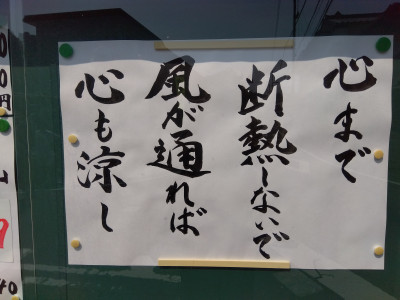 心まで
断熱しないで
風が通れば
心も涼し
円
40